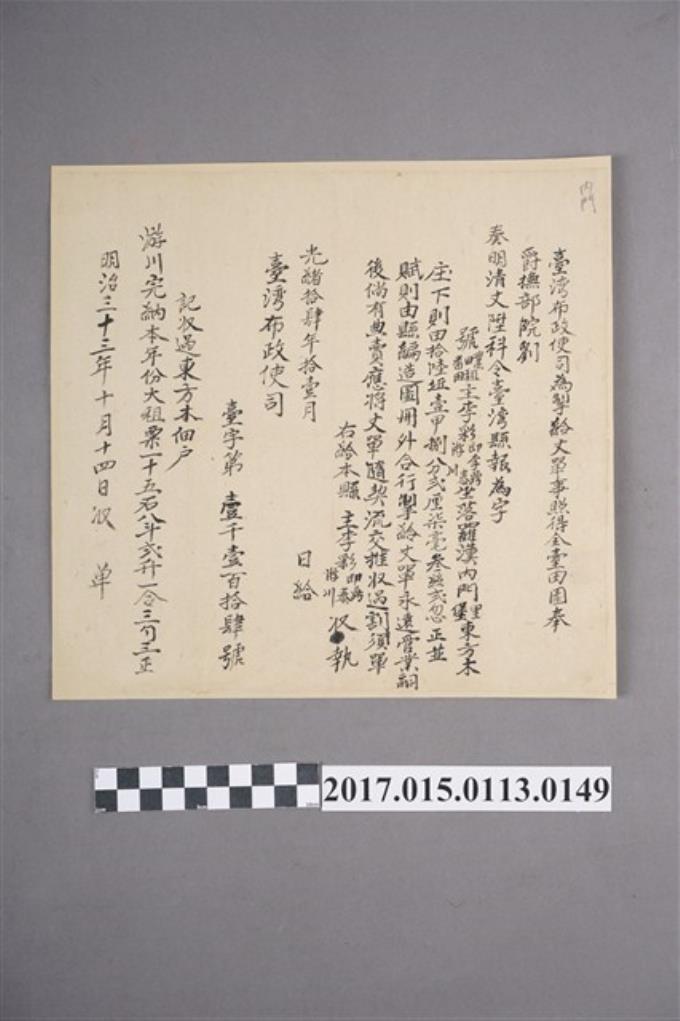 內門
臺湾布政使司為掣給丈單事照得全臺田園奉
爵撫部院劉
奏明清丈陞科今臺湾縣報為字
號 主李彩 坐落羅漢內門里堡東方木
庄下則田拾陸坵壹甲捌分弍厘柒毫叁 弍忽正並
賦則由縣編造圖冊外合行掣給丈單永遠管業嗣
後倘有典賣應將丈單隨契流交推收過割須單
右給本縣 主李彩 游川 收執
光緒拾肆年拾壹月 日給
臺湾布政使司
臺字第 壹千壹百拾肆號
記收過東方木佃户
游川完納本年份大租粟一十五石八斗弍升一合三勺三正
明治三十三年十月十四日收 单
2017.015.0113.0149